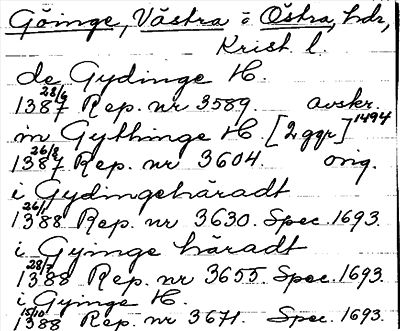 Göinge, Västra o Östra, hdr,
Krist. l.
de Gydinge H.
1387 28/6 Rep. nr 3589. avskr. 1494
m Gythinge H. [2 ggr]
1387 26/8 Rep. nr 3604. orig.
i Gydingehäradt
1388 26/1 Rep. nr 3630. Spec. 1693.
i Gyinge häradt
1388 28/7 Rep. nr 3655. Spec. 1693.
i Gyinge H.
1388 15/10 Rep. nr 3671. Spec. 1693.